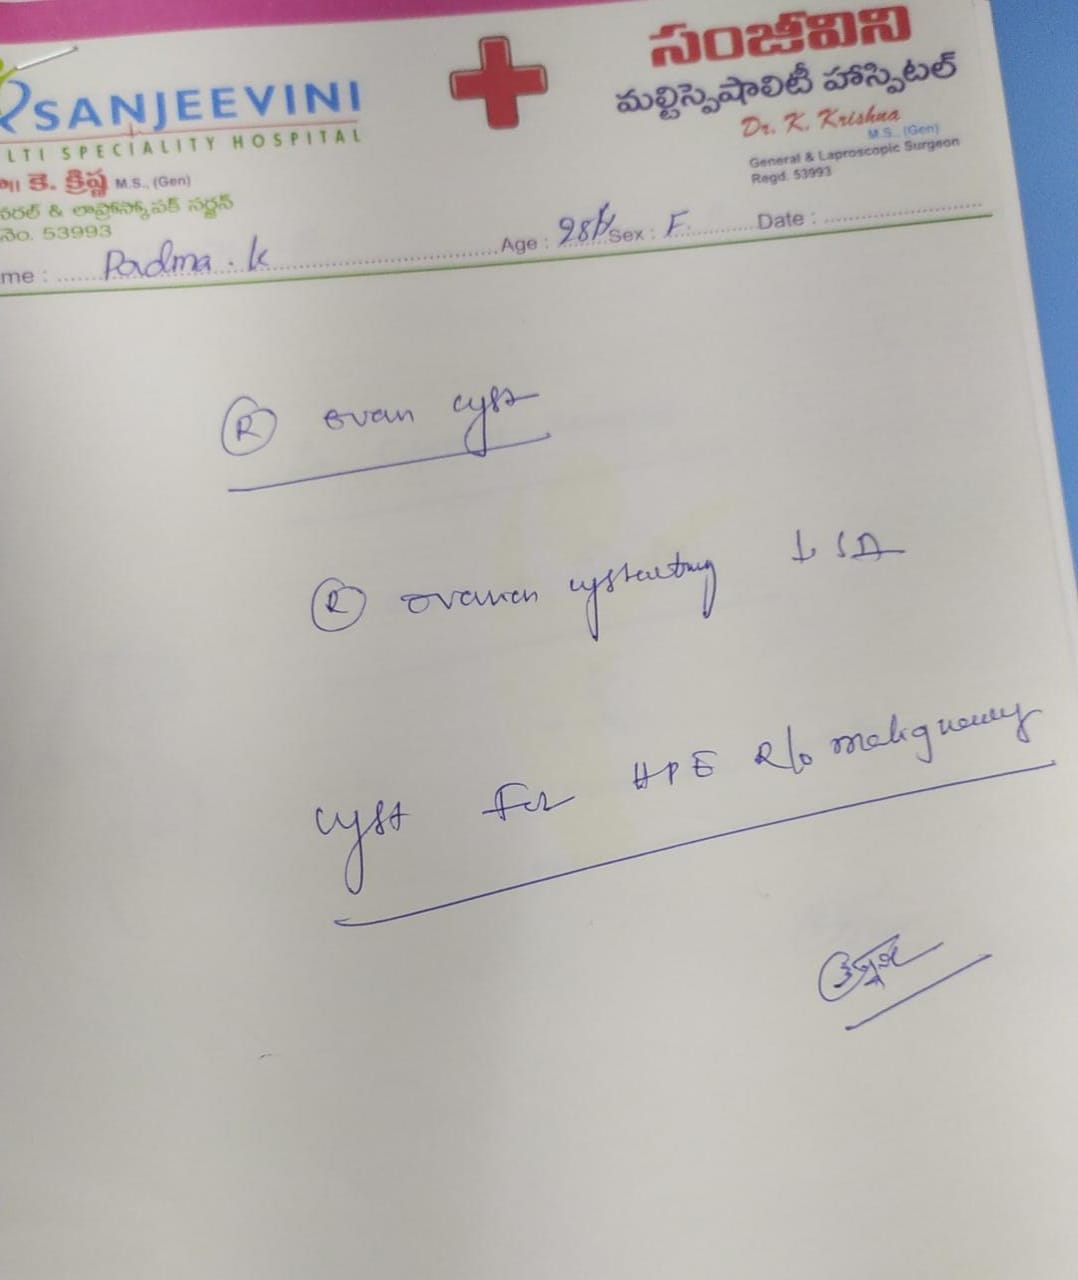 SANJEEVINI
LTI SPECIALITY HOSPITAL
కె. క్రిష్ణ M.S., (Gen)
నరల్ & లాప్రోస్కోపిక్ సర్జన్
నెం. 53993
సంజీవిని
మల్టిస్పెషాలిటీ హాస్పిటల్
Dr. K. Krishna
M.S., (Gen)
General & Laproscopic Surgeon
Regd. 53993
me : Padma . k Age : 28 Sex : F. Date :
R ovan cyst
R ovarian cystectomy
cyst For HPE R/o malignancy